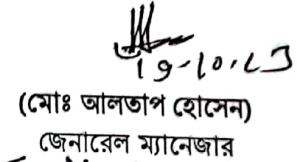 19-10.23
(মোঃ আলতাপ হোসেন)
জেনারেল ম্যানেজার